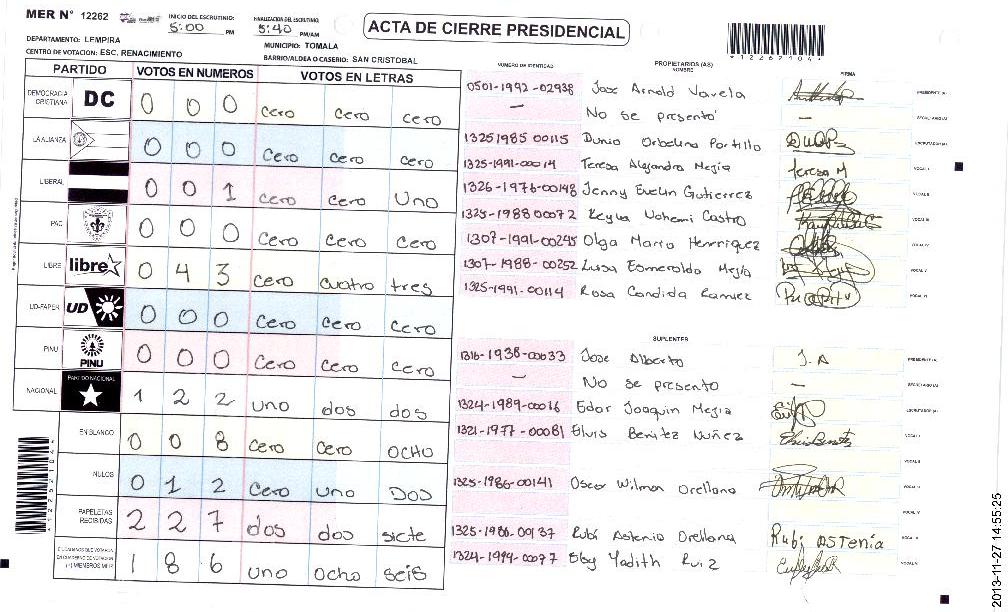 MER Nº 12262
INICIO DEL ESCRUTINIO: 5:00 PM
FINALIZACION DEL ESCRUTINIO: 5:40 PM/AM
ACTA DE CIERRE PRESIDENCIAL
DEPARTAMENTO: LEMPIRA
MUNICIPIO: TOMALA
CENTRO DE VOTACION: ESC. RENACIMIENTO
BARRIO/ALDEA O CASERIO: SAN CRISTOBAL
PARTIDO VOTOS EN NUMEROS VOTOS EN LETRAS
DEMOCRACIA CRISTIANA DC 0 0 0 cero cero cero
LA ALIANZA 0 0 0 cero cero cero
LIBERAL 0 0 1 cero cero uno
PAC 0 0 0 cero cero cero
LIBRE libre 0 4 3 cero cuatro tres
UD-FAPER UD 0 0 0 cero cero cero
PINU PINU 0 0 0 cero cero cero
NACIONAL PARTIDO NACIONAL 1 2 2 uno dos dos
EN BLANCO 0 0 8 cero cero OCHO
NULOS 0 1 2 cero uno DOS
PAPELETAS RECIBIDAS 2 2 7 dos dos siete
CIUDADANOS QUE VOTARON EN CUADERNO DE VOTACION (+) MIEMBROS MER 1 8 6 uno ocho seis
NUMERO DE IDENTIDAD PROPIETARIOS (AS) NOMBRE FIRMA
0501-1992-02938 Jose Arnold Varela PRESIDENTE (A)
— No se presento' — SECRETARIO (A)
1325 1985 00115 Dunia Orbelina Portillo ESCRUTADOR (A)
1325-1991-00014 Teresa Alejandra Mejia Teresa M VOCAL I
1326-1976-00148 Jenny Evelin Gutierrez VOCAL II
1325-1988 00072 Keyla Nohemi Castro VOCAL III
1307-1991-00245 Olga Marro Henriquez VOCAL IV
1307-1988-00252 Luisa Esmeralda Mejía VOCAL V
1325-1991-00114 Rosa Candida Ramirez VOCAL VI
SUPLENTES
1316-1938-00033 Jose Alberto J. A PRESIDENTE (A)
— No se presento — SECRETARIO (A)
1324-1989-00016 Edar Joaquin Mejia ESCRUTADOR (A)
1321-1977-00081 Elvis Benitez Nuñez Elvis Benitez VOCAL I
VOCAL II
1325-1986-00141 Oscar Wilman Orellana VOCAL III
VOCAL IV
1325-1986-00137 Rubí Astenia Orellana Rubi ASTENIA VOCAL V
1324-1994-00077 Elsy Yadith Ruiz VOCAL VI
2013-11-27 14:55:25